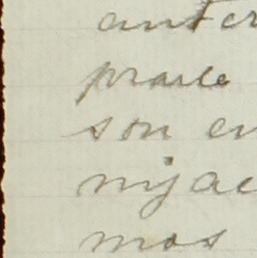 anter
prarle
son en
nijac
mos